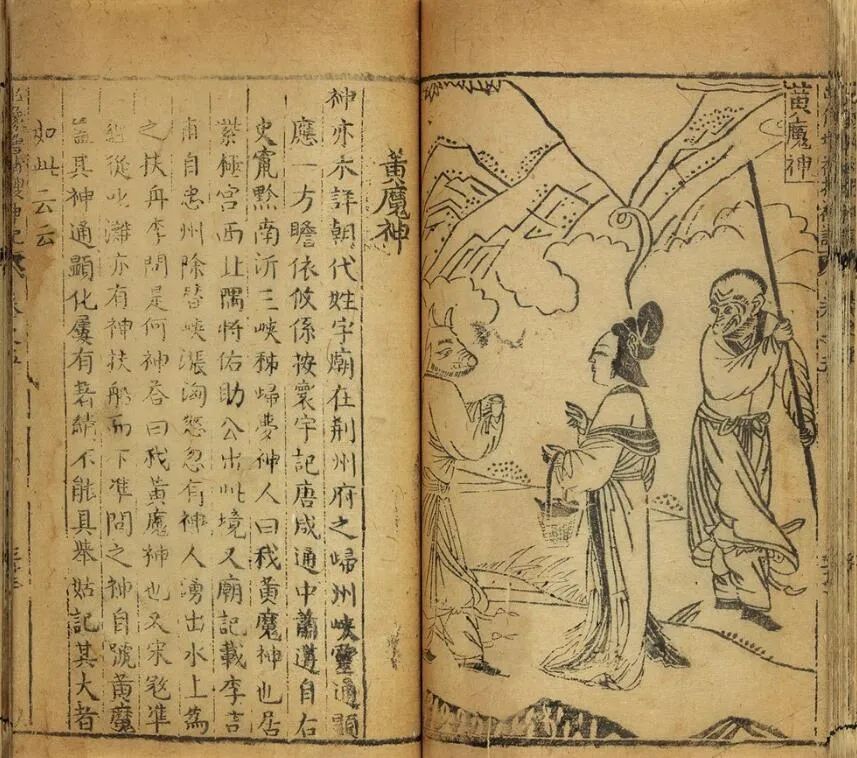 黃魔神
黃魔神
神亦不詳朝代姓字廟在荆州府之歸州峽靈通顯
應一方瞻依攸係按寰宇記唐咸通中蕭遘自右
史竄黔南泝三峽秭歸夢神人曰我黃魔神也居
紫極宮西北隅將佑助公出此境又廟記載李吉
甫自忠州除替峽漲洶怒忽有神人湧出水上為
之扶舟李問是何神荅曰我黃魔神也又宋宼準
經從叱灘亦有神扶船而下準問之神自號黃魔
葢其神通顯化屢有著績不能具舉姑記其大者
如此云云